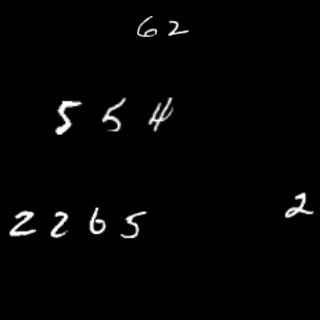 62
554
2265
2